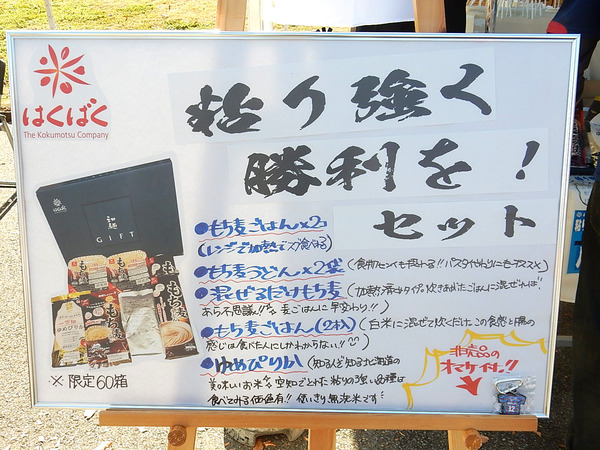 はくばく
The Kokumotsu Company
粘り強く
勝利を!
セット
和麺
GIFT
●もち麦ごはん×2コ
(レンジで加熱してスグ食べれる)
●もち麦うどん×2袋(食物センイも採れる!!パスタ代わりにもオススメ)
●混ぜるだけもち麦(加熱済みタイプ。炊きあがったごはんに混ぜれば
あら不思議!!麦ごはんに早変わり!!)
●もち麦ごはん(2本入)(白米に混ぜて炊くだけ。この食感と腸の
感じは食べた人にしかわからない!!)
●ゆめぴりか(知る人ぞ知る北海道の
美味しいお米 空知でとれた粘りの強い品種は
食べてみる価値有!!使いきり無洗米です
非売品の
オマケ付!!
12
※限定60箱